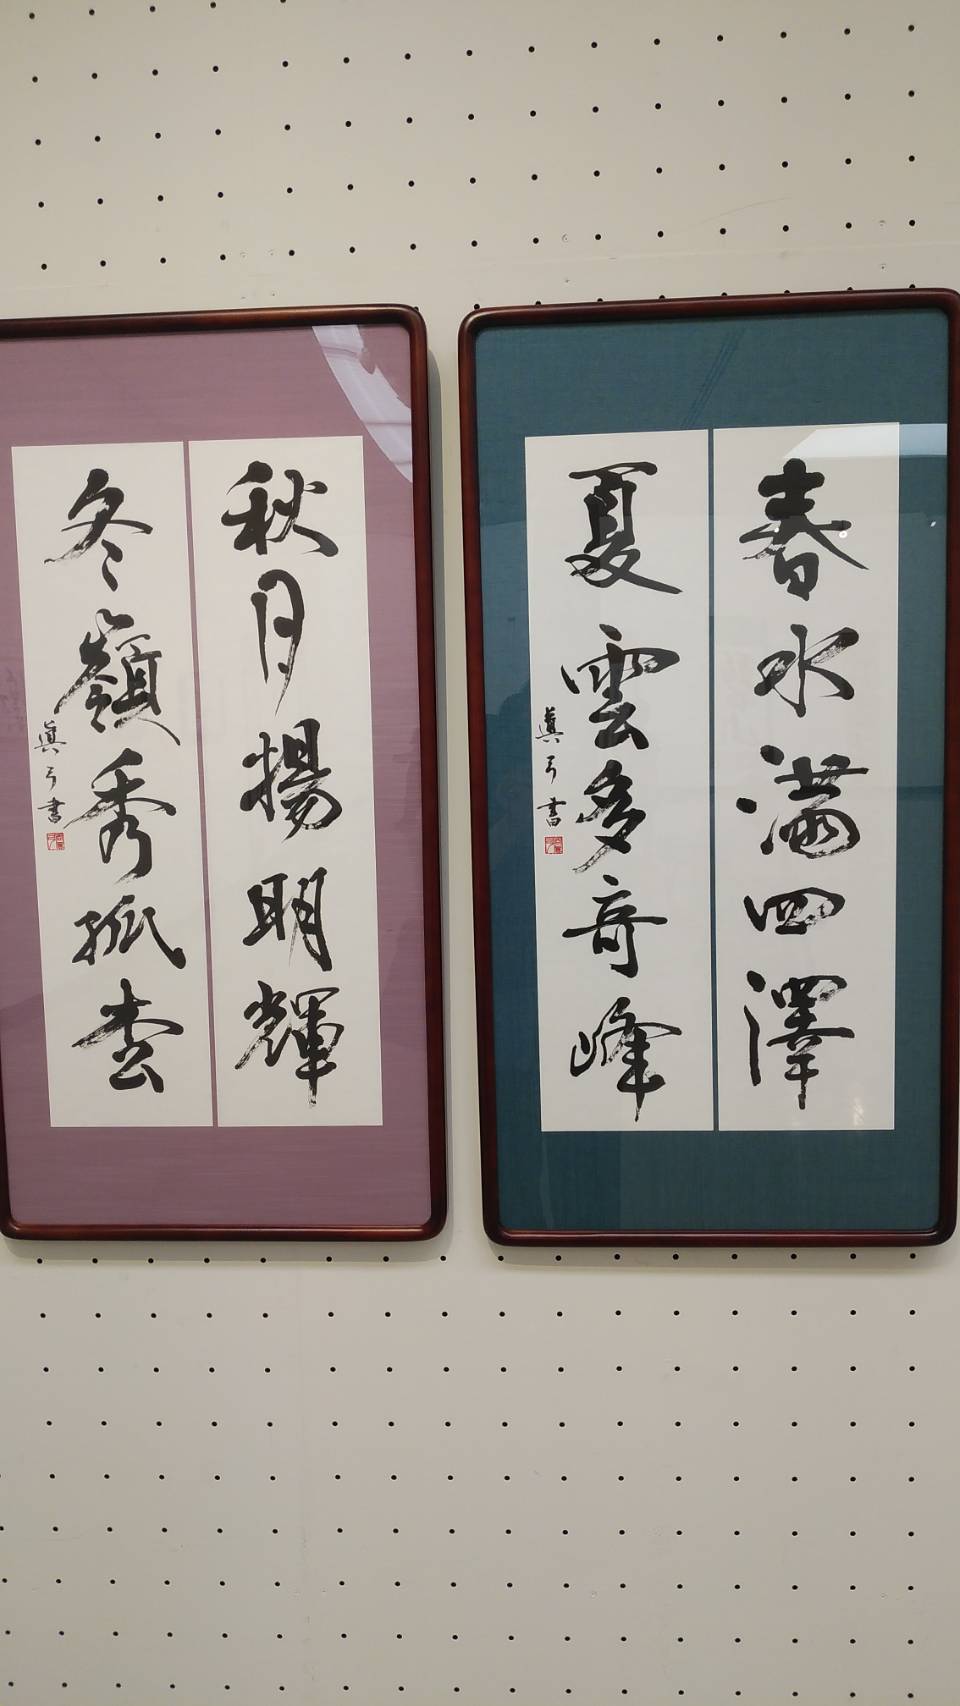 春水満四澤
夏雲多奇峰
眞弓書
秋月揚明輝
冬嶺秀孤松
眞弓書